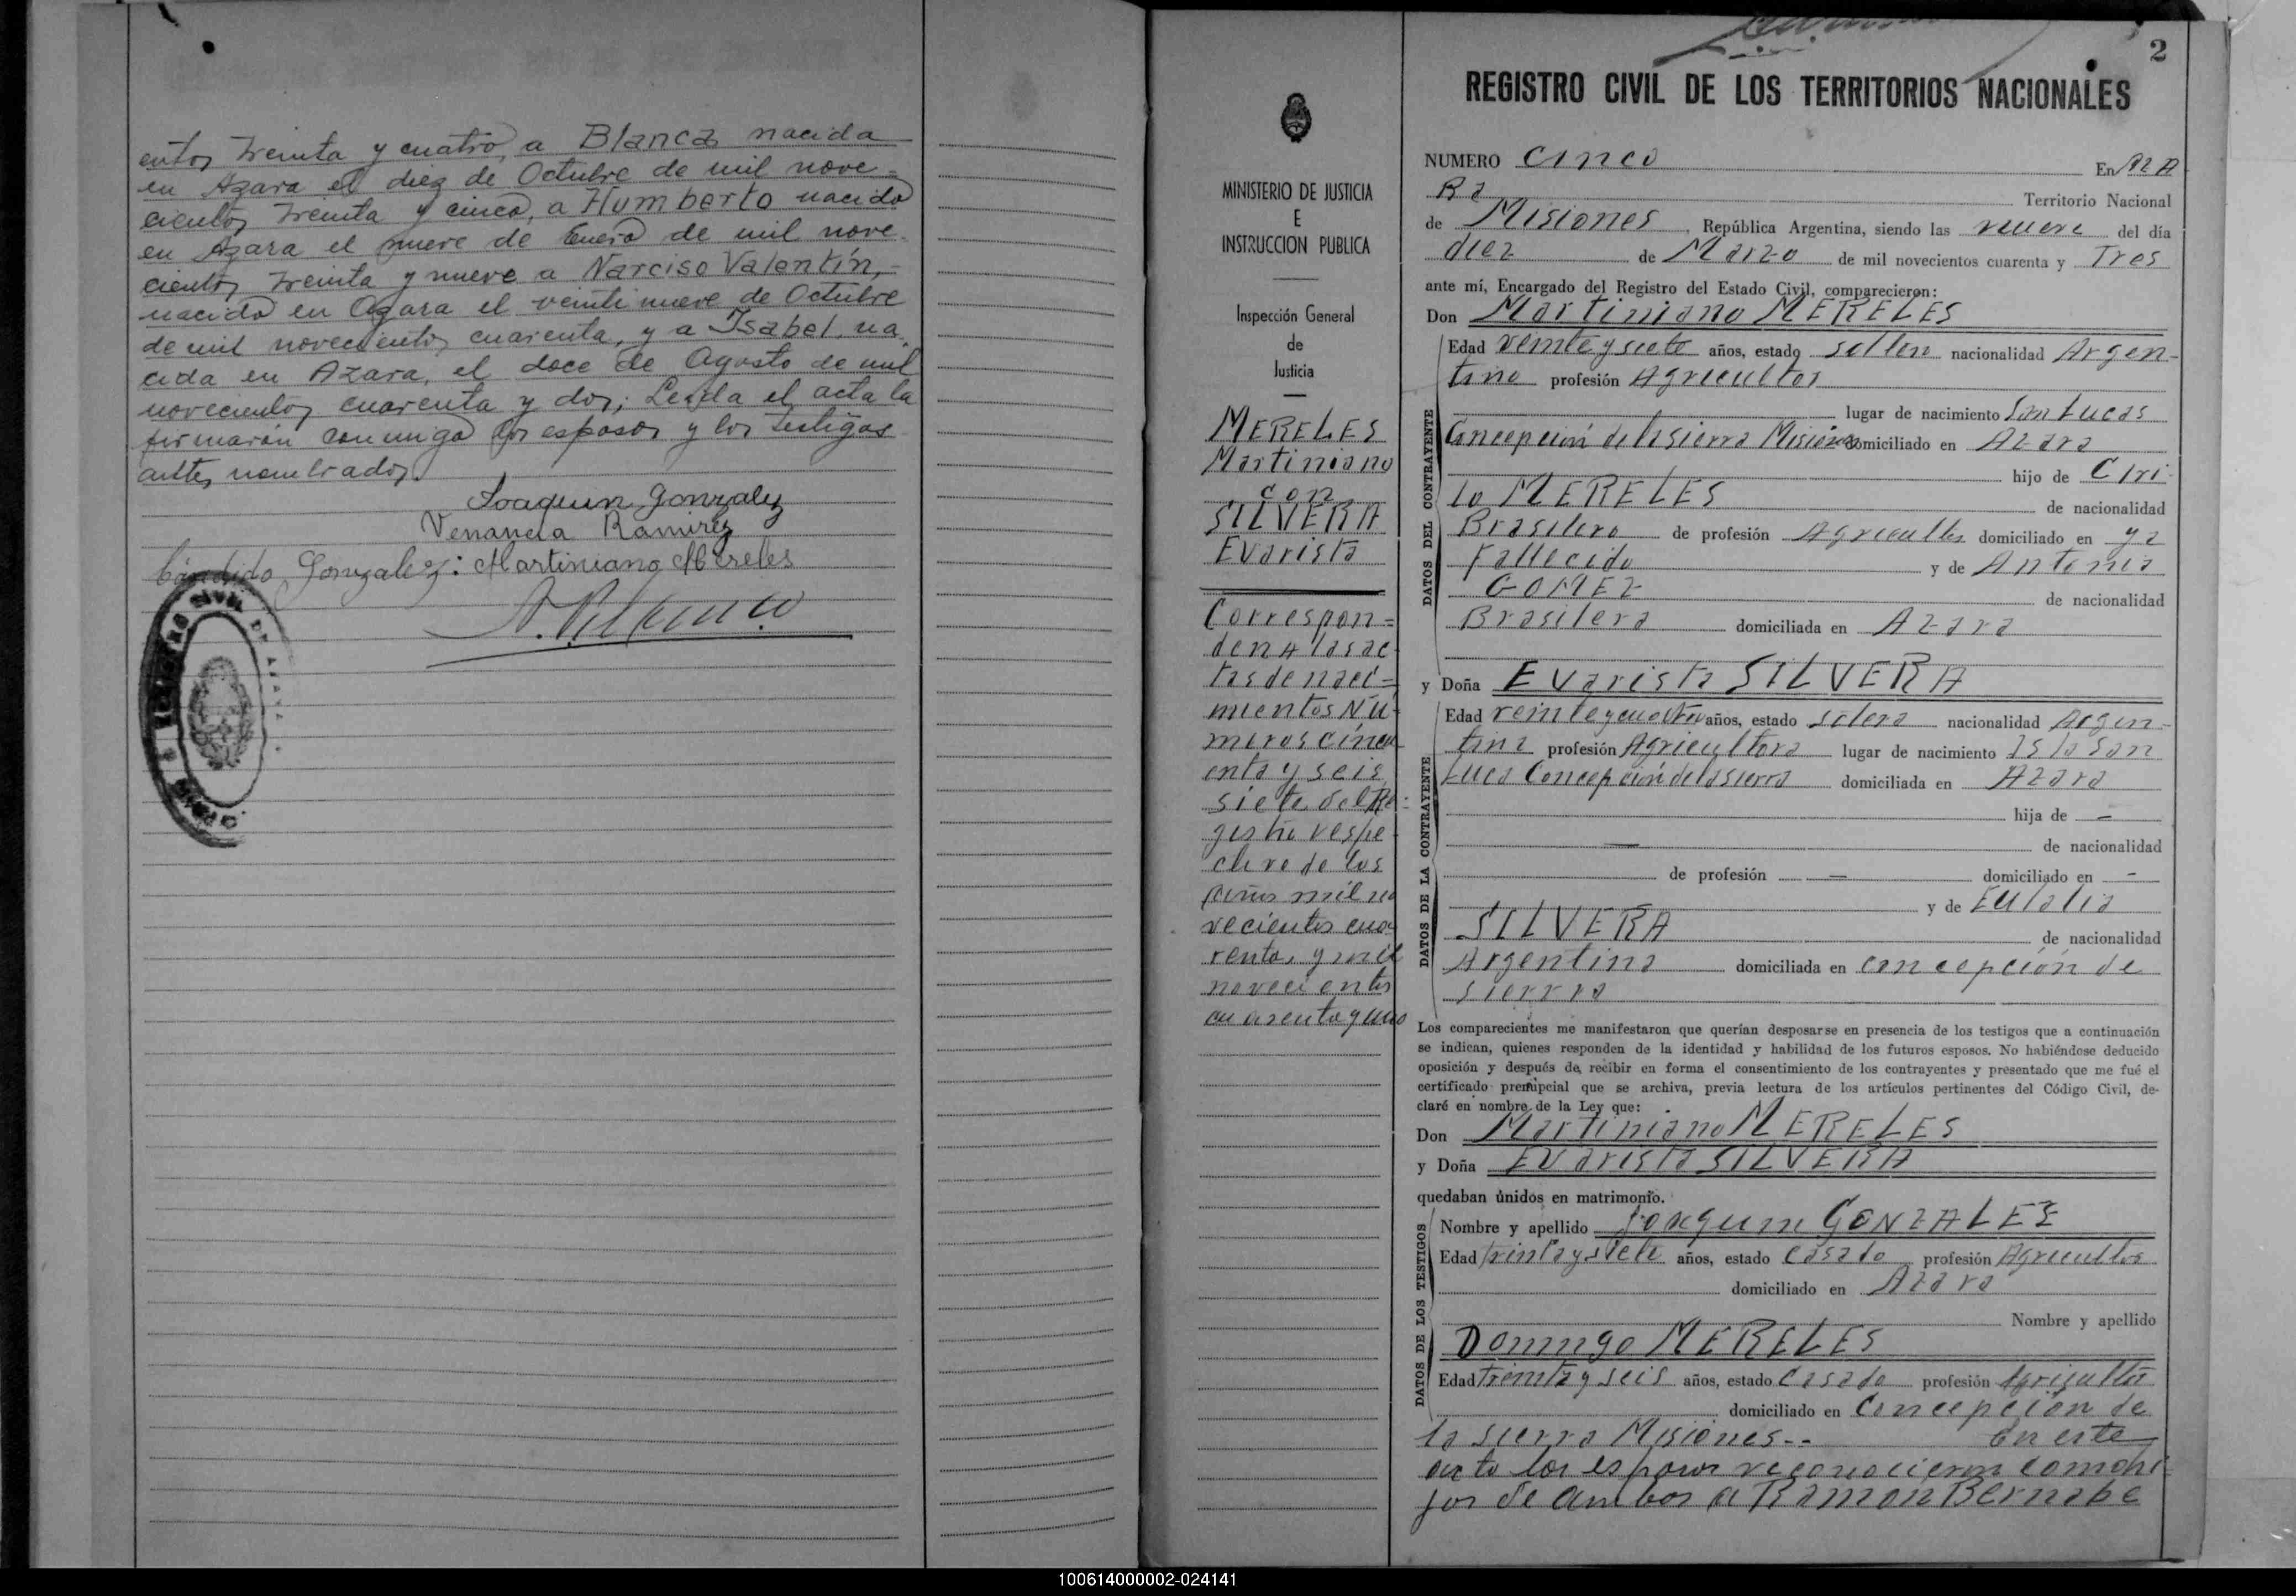 entos treinta y cuatro, a Blanca nacida
en Azara el diez de Octubre de mil nove-
cientos treinta y cinco, a Humberto nacido
en Azara el nueve de Enero de mil nove-
cientos treinta y nueve a Narciso Valentín,-
nacido en Azara el veintinueve de Octubre
de mil novecientos cuarenta, y a Isabel, na-
cida en Azara, el doce de Agosto de mil
novecientos cuarenta y dos; Leída el acta la
firmarón conmigo los esposos y los testigos
antes nombrados.
Joaquin Gonzalez
Venancia Ramirez
Cándido Gonzalez: Martiniano Mereles
2
REGISTRO CIVIL DE LOS TERRITORIOS NACIONALES
MINISTERIO DE JUSTICIA
E
INSTRUCCION PUBLICA
Inspección General
de
Justicia
MERELES
Martiniano
con
SILVERA
Evarista
Correspon=
den a las ac-
tas de naci=
mientos Nú-
meros cincu
enta y seis
siete del Re-
gistro respe-
ctivo de los
años mil no
vecientos cua-
renta, y mil
novecientos
cuarenta y uno
NUMERO cinco En AZA
RA Territorio Nacional
de Misiones, República Argentina, siendo las nueve del día
diez de Marzo de mil novecientos cuarenta y Tres
ante mí, Encargado del Registro del Estado Civil, comparecieron:
Don Martiniano MERELES
DATOS DEL CONTRAYENTE
Edad veinte y siete años, estado soltero nacionalidad Argen-
tino profesión Agricultor
lugar de nacimiento San Lucas
Concepción de la sierra Misiones domiciliado en Azara
hijo de Ciri-
lo MERELES de nacionalidad
Brasilero de profesión Agricultor domiciliado en ya
Fallecido y de Antonia
GOMEZ de nacionalidad
Brasilera domiciliada en Azara
y Doña Evarista SILVERA
DATOS DE LA CONTRAYENTE
Edad veinte y cuatro años, estado soltera nacionalidad Argen-
tina profesión Agricultora lugar de nacimiento Isla San
Luca Concepción de la sierra domiciliada en Azara
hija de -
— de nacionalidad
de profesión — domiciliado en -
y de Eulalia
SILVERA de nacionalidad
Argentina domiciliada en concepción de
sierra
Los comparecientes me manifestaron que querían desposarse en presencia de los testigos que a continuación
se indican, quienes responden de la identidad y habilidad de los futuros esposos. No habiéndose deducido
oposición y después de recibir en forma el consentimiento de los contrayentes y presentado que me fué el
certificado prenupcial que se archiva, previa lectura de los artículos pertinentes del Código Civil, de-
claré en nombre de la Ley que:
Don Martiniano MERELES
y Doña Evarista SILVERA
quedaban únidos en matrimonio.
DATOS DE LOS TESTIGOS
Nombre y apellido Joaquin GONZALEZ
Edad treinta y siete años, estado casado profesión Agricultor
domiciliado en Azara
Nombre y apellido
Domingo MERELES
Edad treinta y seis años, estado casado profesión Agricultor
domiciliado en Concepción de
la sierra Misiones-- En este
acto los esposos reconocieron como hi-
jos de ambos a Ramon Bernabe
100614000002-024141